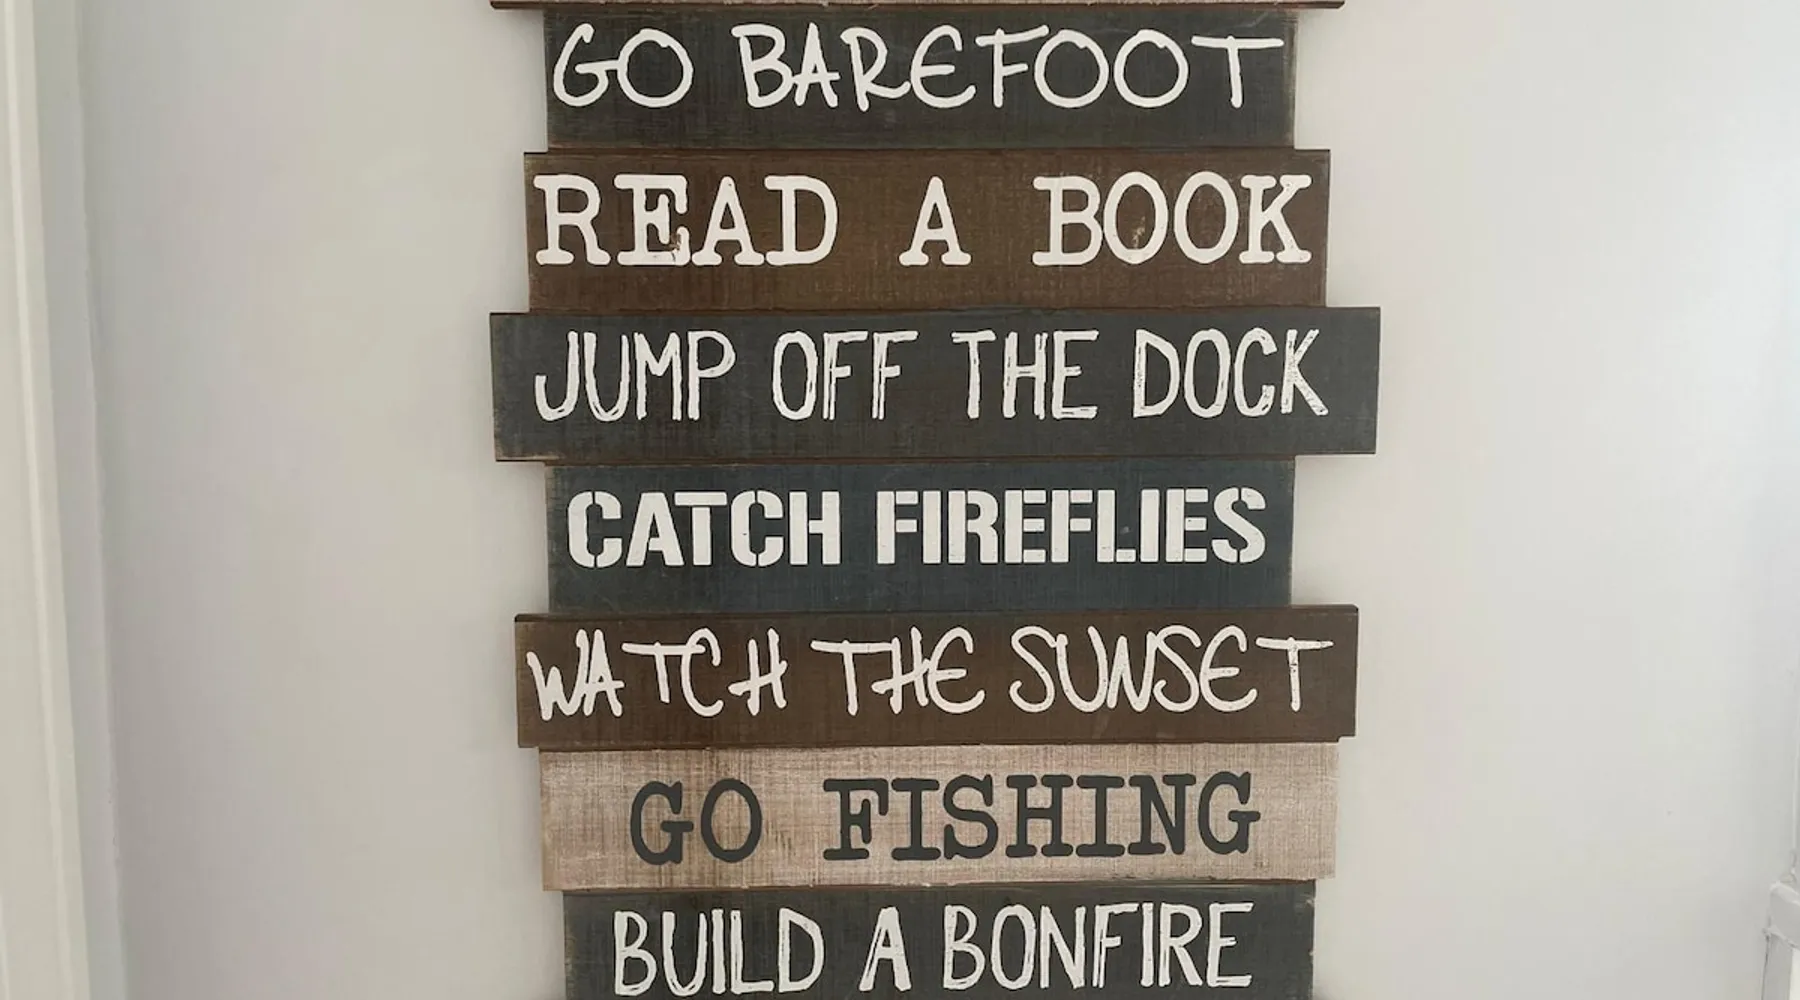 GO BAREFOOT
READ A BOOK
JUMP OFF THE DOCK
CATCH FIREFLIES
WATCH THE SUNSET
GO FISHING
BUILD A BONFIRE